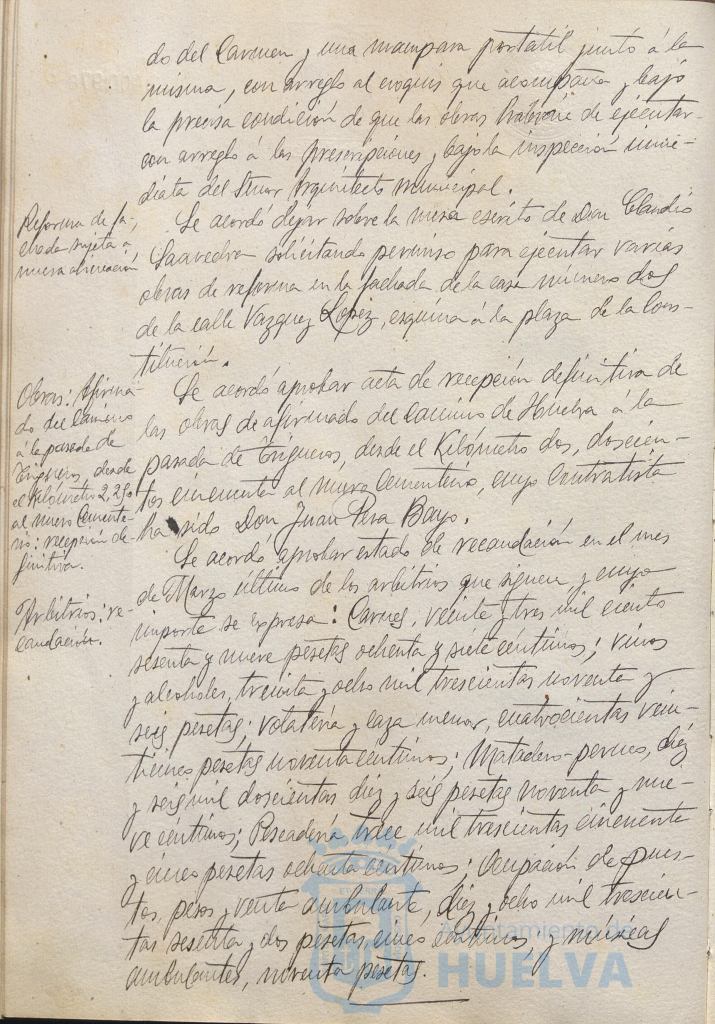 do del Carmen y una mampara portátil junto á la
misma, con arreglo al croquis que acompaña y bajo
la precisa condición de que las obras habrán de ejecutar-
con arreglo á las prescripciones y bajo la inspección inme-
diata del Señor Arquitecto municipal.
Reforma de fa-
chada sujeta a
nueva alineación
Se acordó dejar sobre la mesa escrito de Don Claudio
Saavedra solicitando permiso para ejecutar varias
obras de reforma en la fachada de la casa número dos
de la calle Vazquez Lopez, esquina á la plaza de la Cons-
titución.
Obras: Afirma-
do del Camino
á la pasada de
Trigueros, desde
el Kilómetro 2,250
al nuevo Cemente-
rio: recepción de-
finitiva.
Se acordó aprobar acta de recepción definitiva de
las obras de afirmado del Camino de Huelva á la
pasada de Trigueros, desde el Kilómetro dos, doscien-
tos cincuenta al nuevo Cementerio, cuyo contratista
ha sido Don Juan Bayo.
Arbitrios: re-
caudación.
Se acordó aprobar estado de recaudación en el mes
de Marzo último de los arbitrios que siguen y cuyo
importe se expresa: Carnes, veinte y tres mil ciento
sesenta y nueve pesetas ochenta y siete céntimos; vinos
y alcoholes, treinta y ocho mil trescientas noventa y
seis pesetas; volatería y caza menor, cuatrocientas vein-
ticinco pesetas noventa céntimos; Matadero-percus, diez
y seis mil doscientas diez y seis pesetas noventa y nue-
ve céntimos; Pescadería trece mil trescientas cincuenta
y cinco pesetas ochenta céntimos; Ocupación de pues-
tos, pesos y venta ambulante, diez y ocho mil trescien-
tas sesenta y dos pesetas cinco céntimos y músicas
ambulantes, noventa pesetas.
Ayuntamiento de
HUELVA